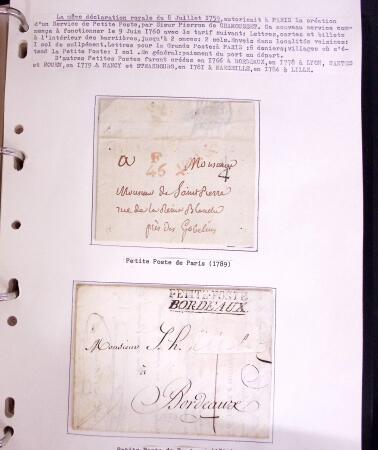 La même déclaration royale du 8 Juillet 1759, autorisait à PARIS la création
d'un Service de Petite Poste, par Sieur Pierron de CHAMOUSSET. Ce nouveau service commença
à fonctionner le 9 Juin 1760 avec le tarif suivant: Lettres, cartes et billets
à l'intérieur des barrières, jusqu'à 2 onces: 2 sols. Envois dans localités voisines:
1 sol de supplément. Lettres pour la Grande Poste à PARIS: 6 deniers; villes où s'étend
la Petite Poste: 1 sol. En général: paiement du port au départ.
D'autres Petites Postes furent créées en 1766 à BORDEAUX, en 1778 à LYON, NANTES
et ROUEN, en 1779 à NANCY et STRASBOURG, en 1781 à MARSEILLE, en 1784 à LILLE.
a Monsieur
F
46
4
Monsieur de Saint Pierre
rue de la Reine Blanche
près des Gobelins
Petite Poste de Paris (1789)
PETITE-POSTE
BORDEAUX.
Monsieur J. h.
à
Bordeaux